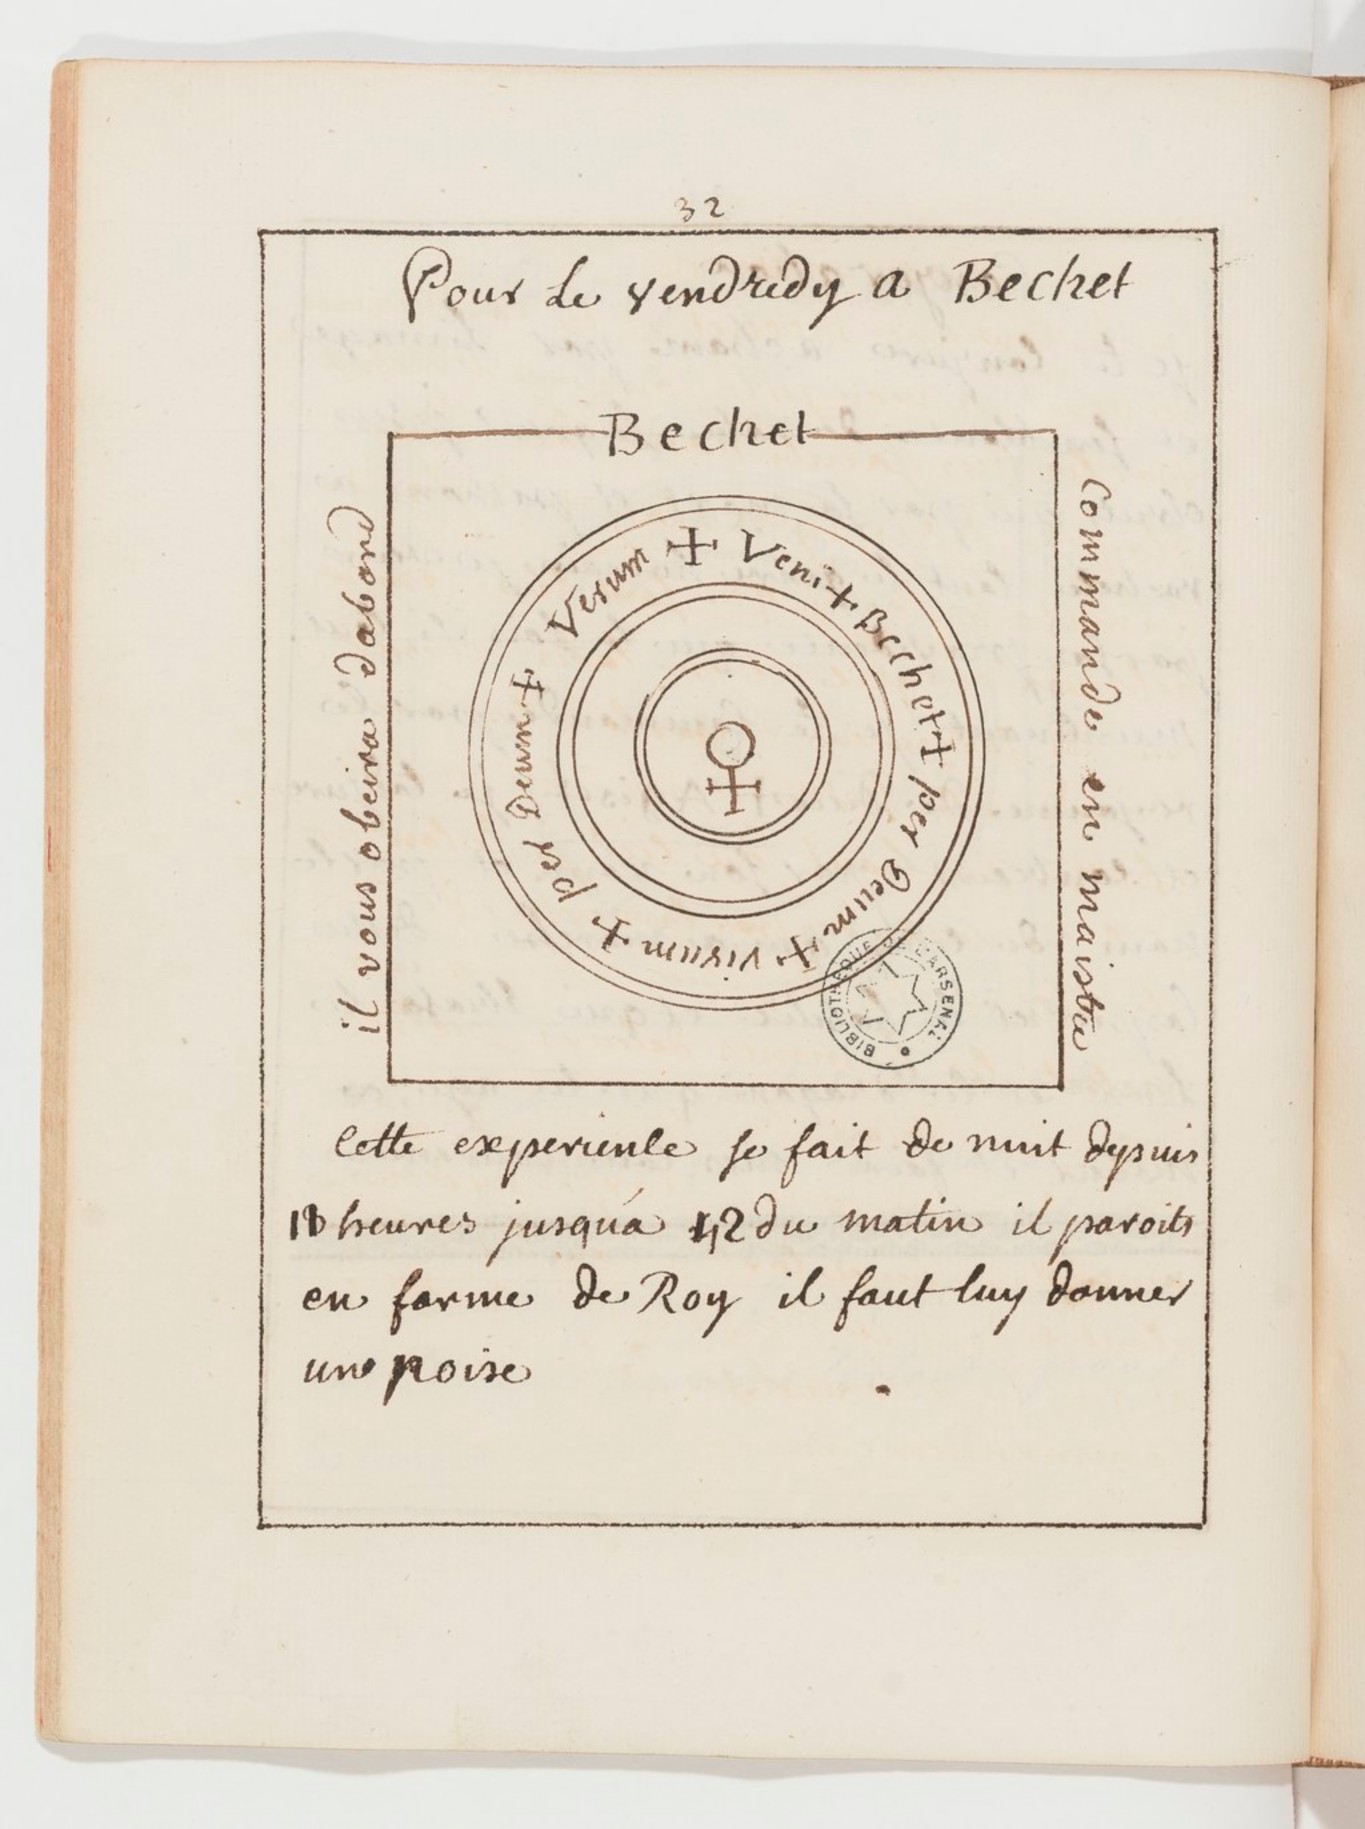 32
Pour Le vendredy a Bechet
Bechet
il vous obeira dabord
✠ Veni + Bechet + per Deum + vivum + per Deum + Verum
commande en maistre
BIBLIOTHEQUE DE L'ARSENAL
Cette experience se fait de nuit depuis
heures jusqu'a du matin il paroits
en forme de Roy il faut luy donner
une noise